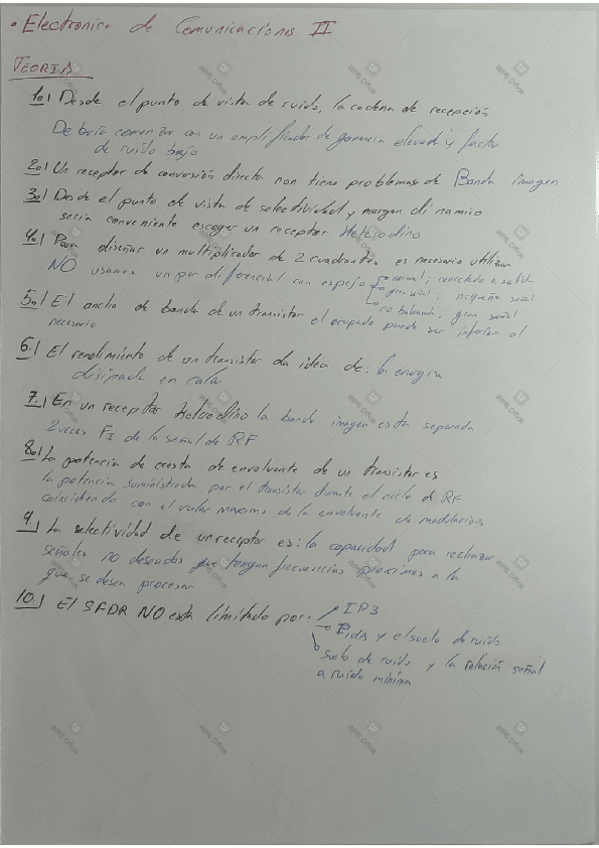 • Electronica de Comunicaciones II
TEORIA
1o) Desde el punto de vista de ruido, la cadena de recepción
Deberia comenzar con un amplificador de ganancia elevada y factor
de ruido bajo
2o) Un receptor de conversión directa non tiene problemas de Banda imagen
3o) Desde el punto de vista de selectividad y margen dinamico
seria conveniente escoger un receptor Heterodino
4o) Para diseñar un multiplicador de 2 cuadrantes es necesario utilizar
NO usamos un par diferencial con espejo normal; conectado a salida
gran señal; pequeña señal
no balanceado; gran señal
5o) El ancho de banda de un transistor el ocupado puede ser inferior al
necesario
6.) El rendimiento de un transistor da idea de: la energia
disipada en calor
7.) En un receptor Heterodino la banda imagen esta separada
2 veces FI de la señal de RF
8o) La potencia de cresta de envolvente de un transistor es
la potencia suministrada por el transistor durante el ciclo de RF
coincidendo con el valor maximo de la envolvente de modulacion
9.) La selectividad de un receptor es: la capacidad para rechazar
señales no deseadas que tengan frecuencias proximas a la
que se desea procesar
10.) El SFDR NO esta limitado por: IP3
P1dB y el suelo de ruido
suelo de ruido y la relación señal
a ruido minima